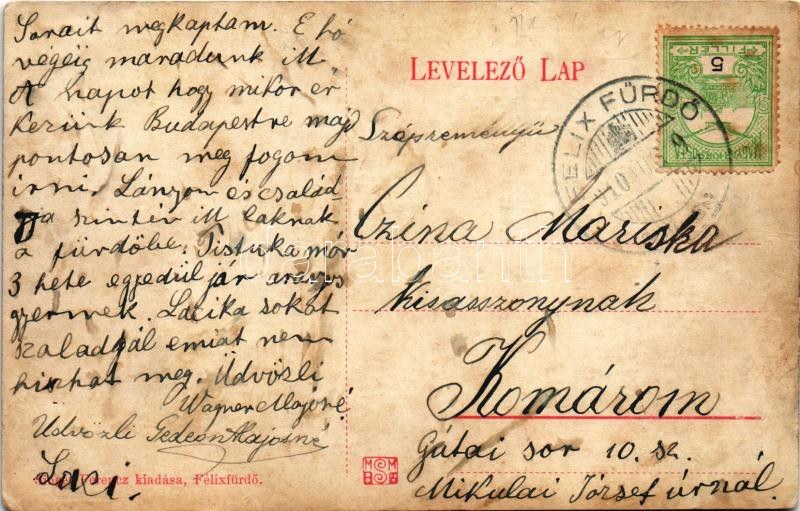 Sorait megkaptam. E hó
végéig maradunk itt
A napot hogy mikor ér
kezünk Budapestre majd
pontosan meg fogom
irni. Lányom és család
ja szintén itt laknak
a fürdőbe. Pistuka már
3 hete egyedül jár aranyos
gyermek. Lacika sokat
szaladgál emiat nem
hizhat meg. Üdvözli
Wagner Majoné
Üdvözli Gedeon Majosné
Laci.
Ferencz kiadása, Félixfürdő.
LEVELEZŐ LAP
5
FILLÉR
FELIX FÜRDŐ
Szépreményü
Czina Mariska
kisasszonynak
Komárom
Gátai sor 10. sz.
Mikulai József úrnál.
MSM
darabanth